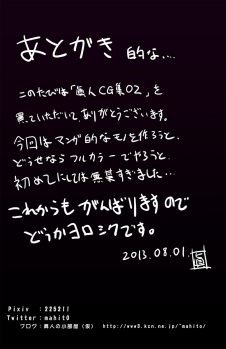 あとがき 的な...
このたびは「眞人CG集02」を
買っていただいて、ありがとうございます。
今回はマンガ的なモノを作ろうと、
どうせならフルカラーでやろうと、
初めてにしては無謀すぎました...
これからもがんばりますので
どうかヨロシクです。
2013.08.01.
Pixiv :225211
Twitter:mahit0
ブログ：眞人の小部屋（仮） http://www9.kcn.ne.jp/~mahito/